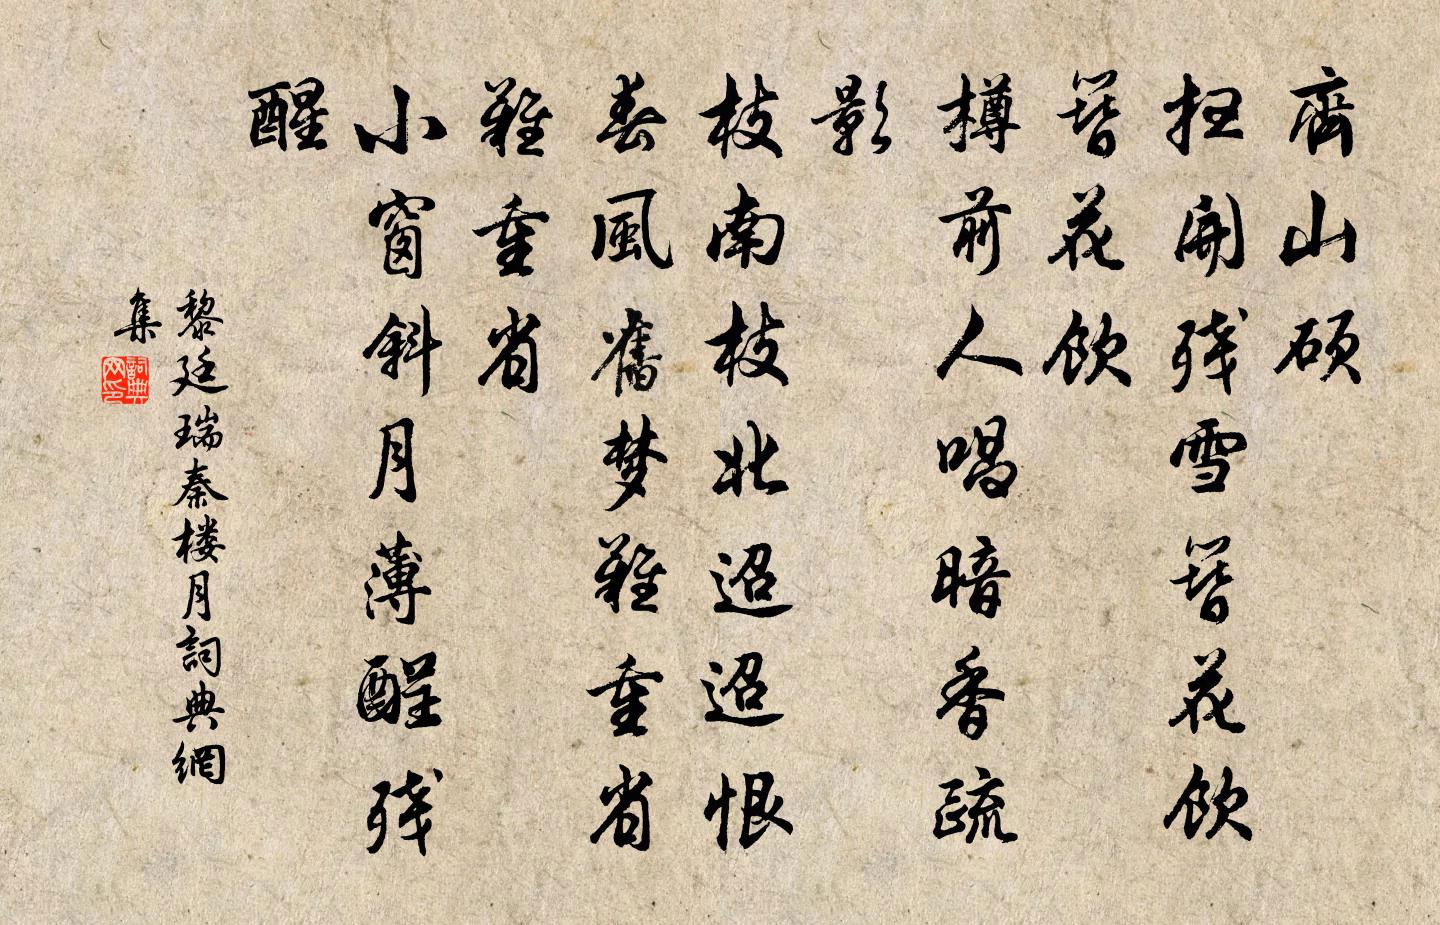 齊山硕
扫開残雪簪花飲
簪花飲
樽前人唱暗香疏
影
枝南枝北迢迢恨
春風舊梦難重省
難重省
小窗斜月薄醒残
醒
黎廷瑞秦楼月詞典網
集
詞典
网印